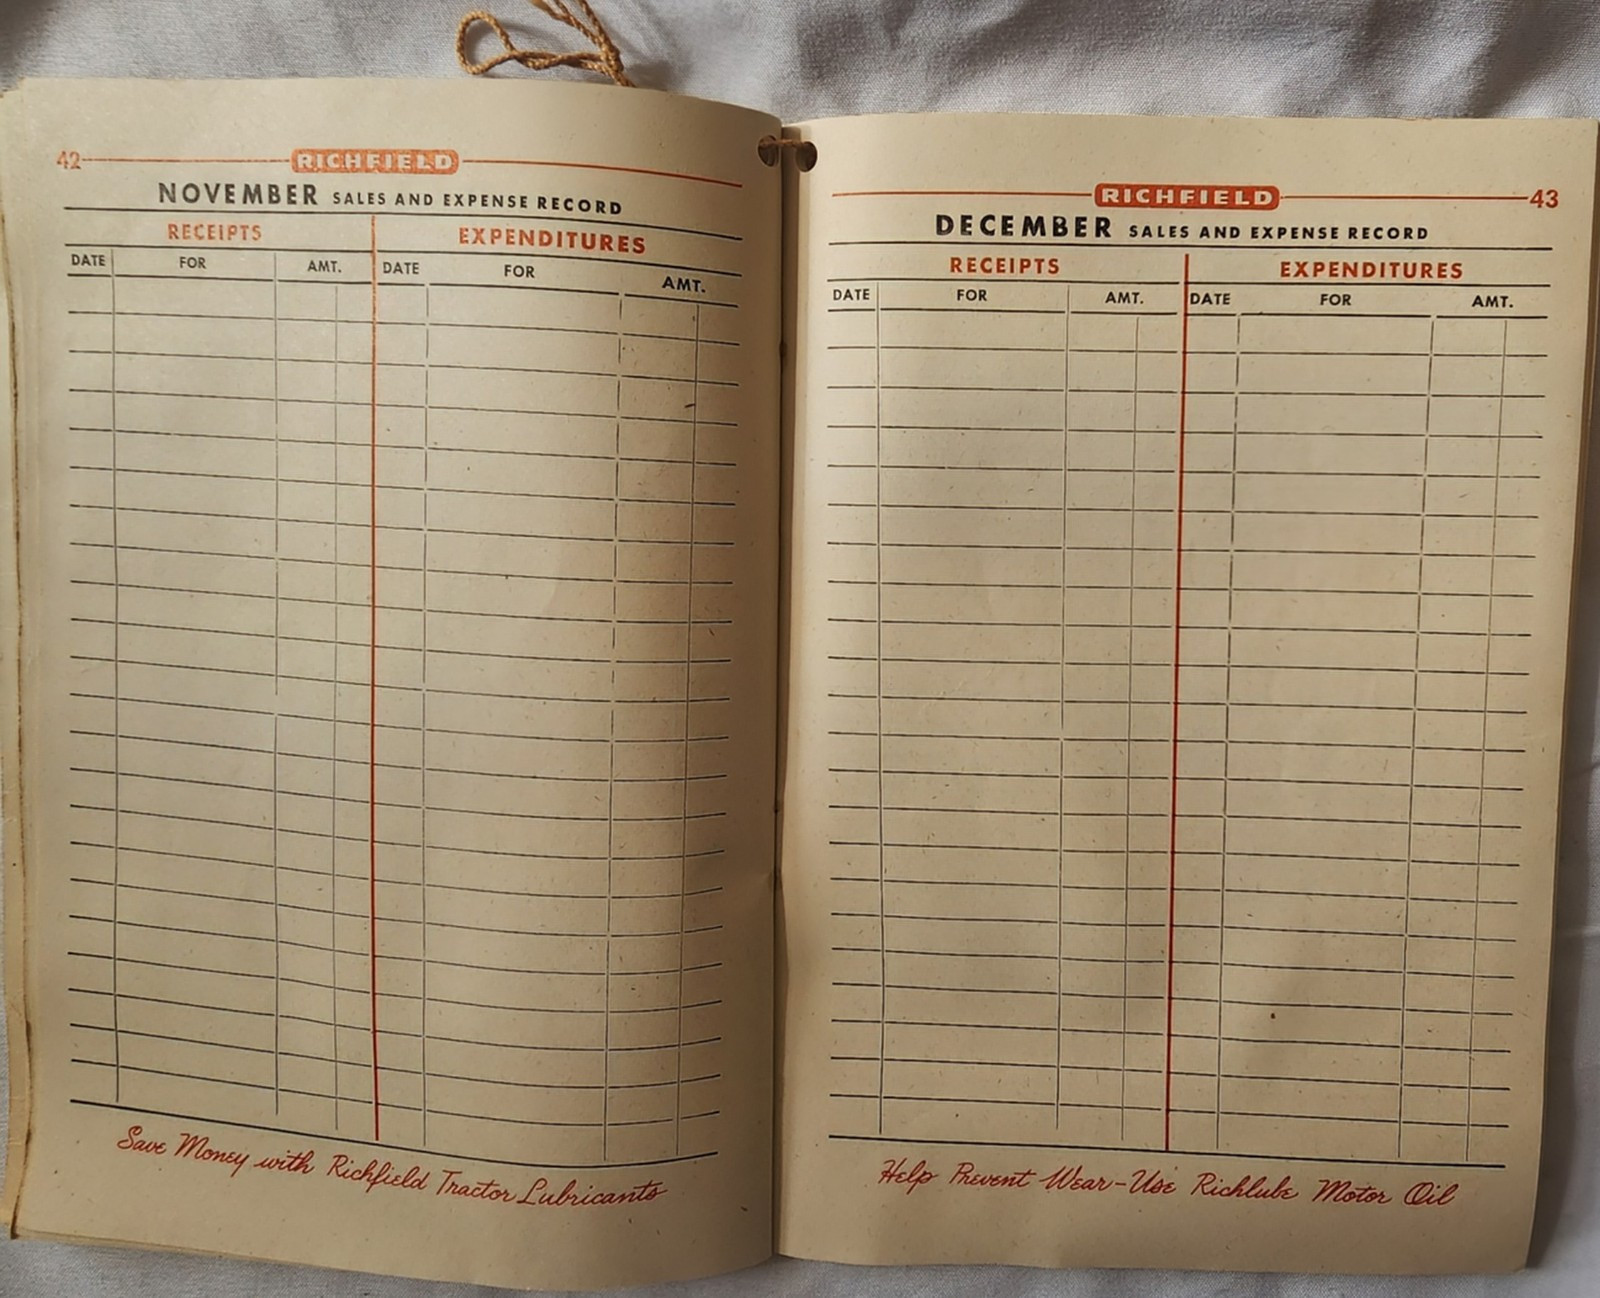 42 RICHFIELD
NOVEMBER SALES AND EXPENSE RECORD
RECEIPTS EXPENDITURES
DATE FOR AMT. DATE FOR AMT.
Save Money with Richfield Tractor Lubricants
RICHFIELD 43
DECEMBER SALES AND EXPENSE RECORD
RECEIPTS EXPENDITURES
DATE FOR AMT. DATE FOR AMT.
Help Prevent Wear-Use Richlube Motor Oil